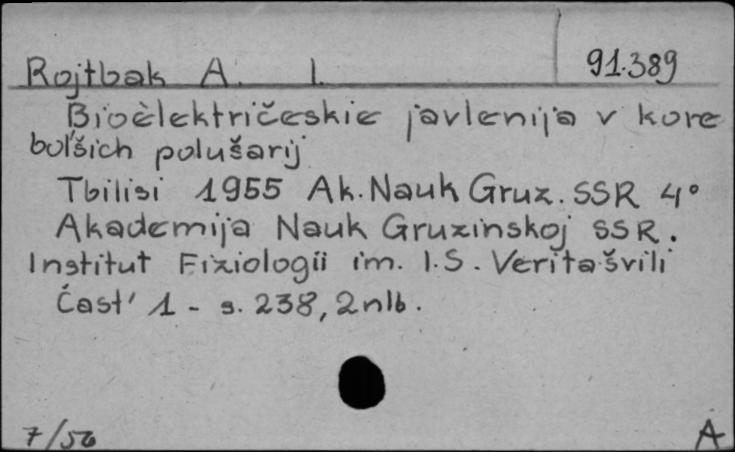 Rojtbak A. I. 91.389
Bioèlektričeskie javlenija v kore
bol'šich polušarij
Tbilisi 1955 Ak. Nauk Gruz. SSR 4°
Akademija Nauk Gruzinskoj SSR.
Institut Fiziologii im. I.S. Veritašvili
Čast' 1 - s. 238, 2 nlb.
7/56 A